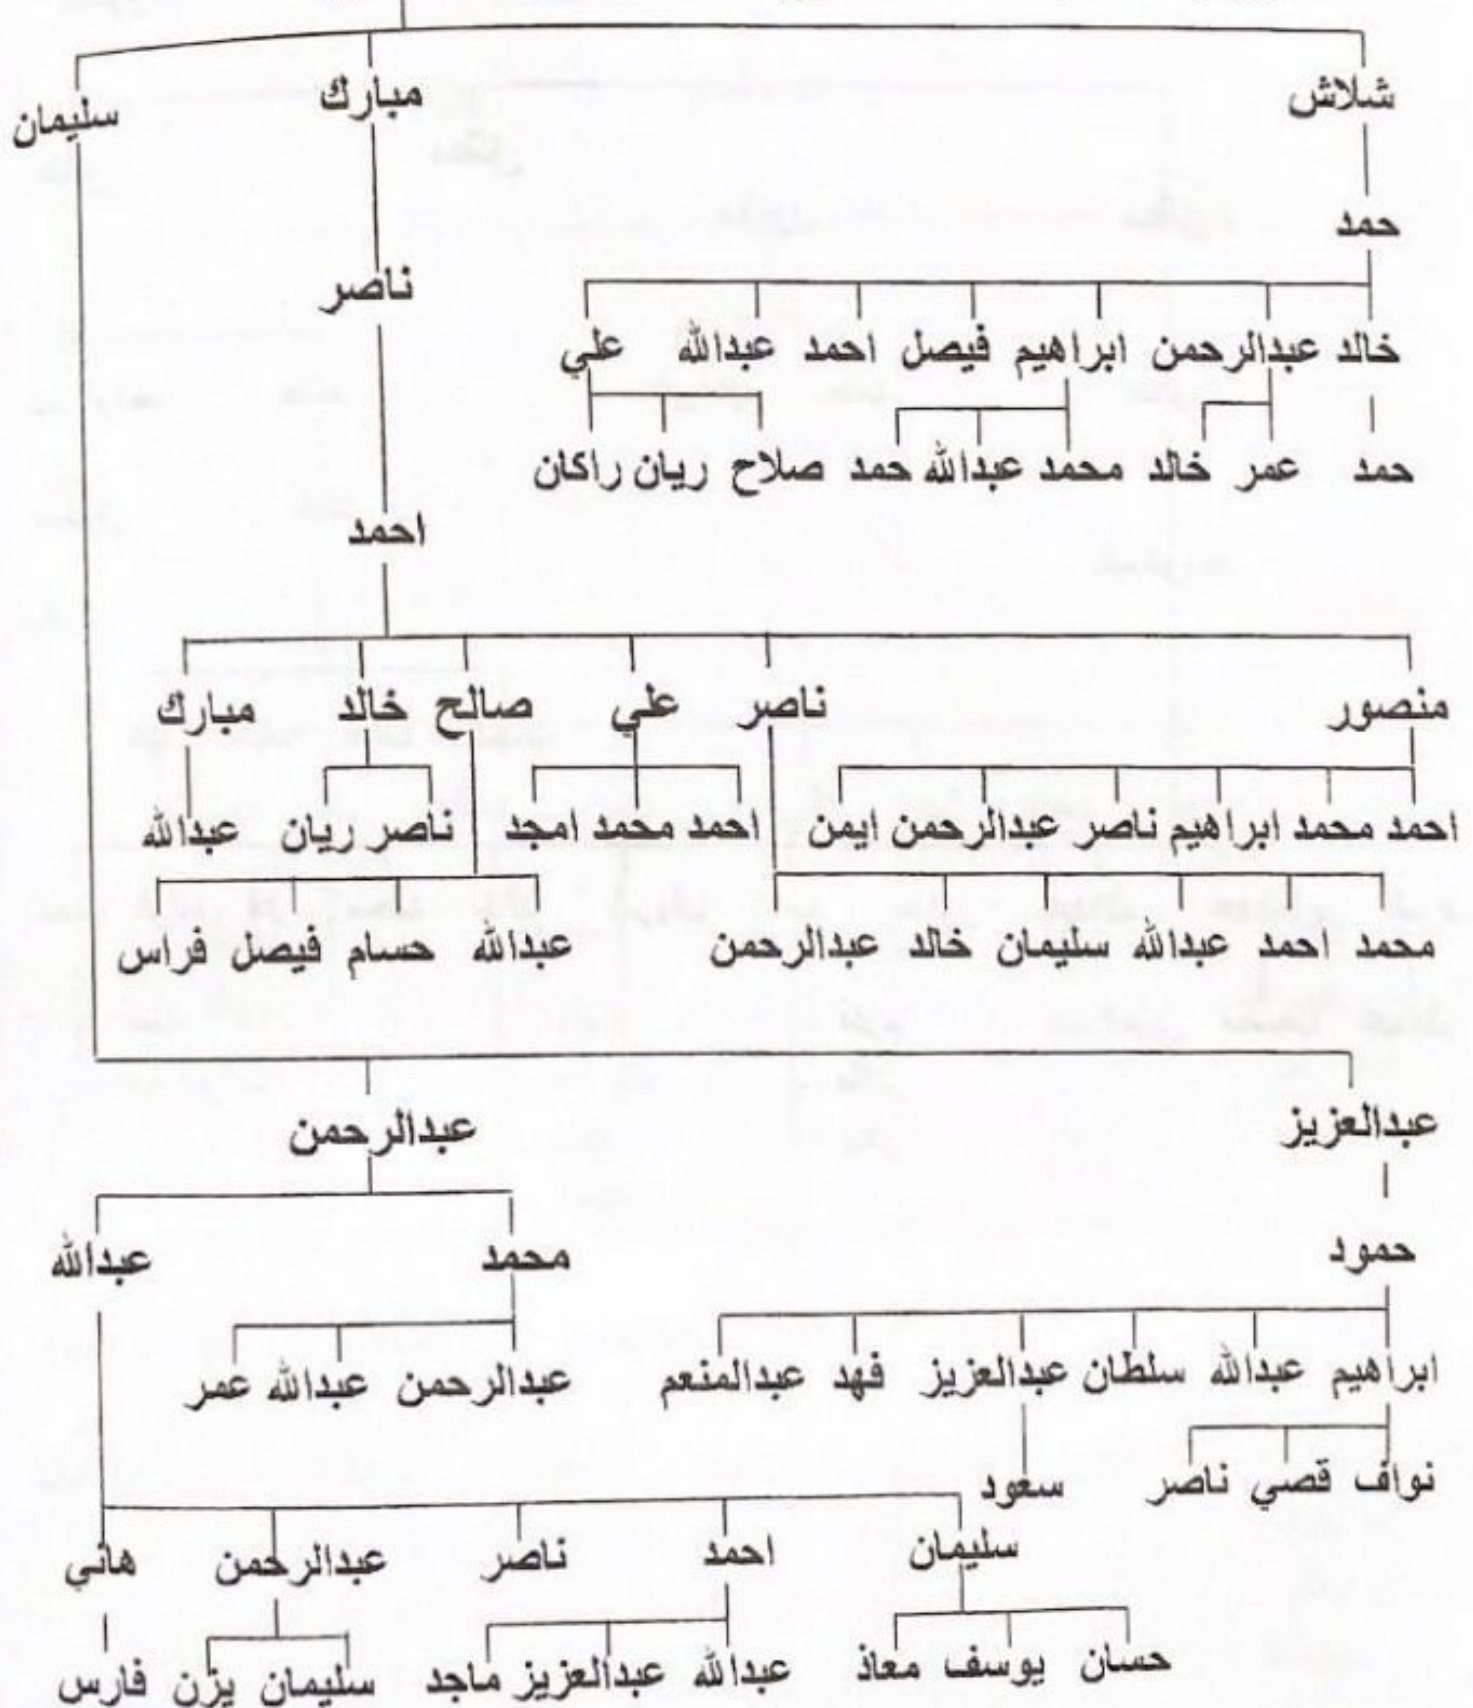 شلاش مبارك سليمان
حمد
ناصر
خالد عبدالرحمن ابراهيم فيصل احمد عبدالله علي
حمد عمر خالد محمد عبدالله حمد صلاح ريان راكان
احمد
منصور ناصر علي صالح خالد مبارك
احمد محمد ابراهيم ناصر عبدالرحمن ايمن احمد محمد امجد ناصر ريان عبدالله
محمد احمد عبدالله سليمان خالد عبدالرحمن عبدالله حسام فيصل فراس
عبدالعزيز عبدالرحمن
حمود محمد عبدالله
ابراهيم عبدالله سلطان عبدالعزيز فهد عبدالمنعم عبدالرحمن عبدالله عمر
نواف قصي ناصر سعود
سليمان احمد ناصر عبدالرحمن هاني
حسان يوسف معاذ عبدالله عبدالعزيز ماجد سليمان يزن فارس